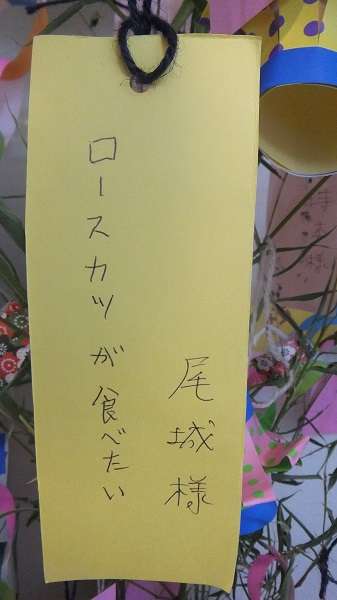 尾城様
ロースカツが食べたい